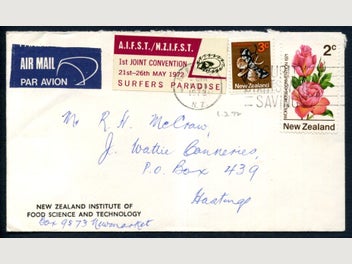 AIR MAIL
PAR AVION
A.I.F.S.T./N.Z.I.F.S.T.
1st JOINT CONVENTION
21st-26th MAY 1972
SURFERS PARADISE
3c
New Zealand
2c
New Zealand
N.Z.
SAVIN
1.3.72
Mr R. H. McCraw,
J. Wattie Canneries,
P.O. Box 439
Hastings
NEW ZEALAND INSTITUTE OF
FOOD SCIENCE AND TECHNOLOGY
Box 9873 Newmarket